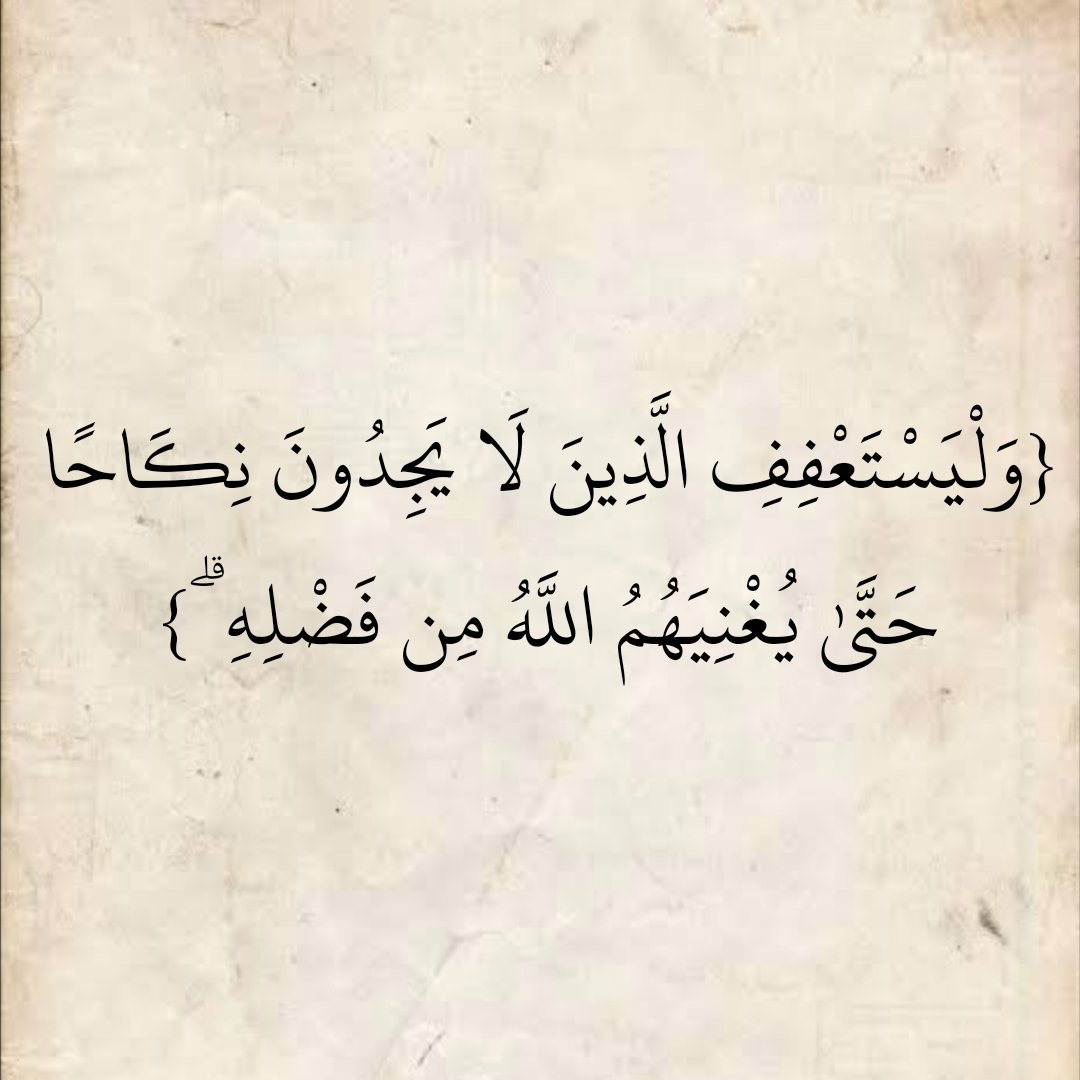 {وَلْيَسْتَعْفِفِ الَّذِينَ لَا يَجِدُونَ نِكَاحًا
حَتَّىٰ يُغْنِيَهُمُ اللَّهُ مِن فَضْلِهِ ۗ}